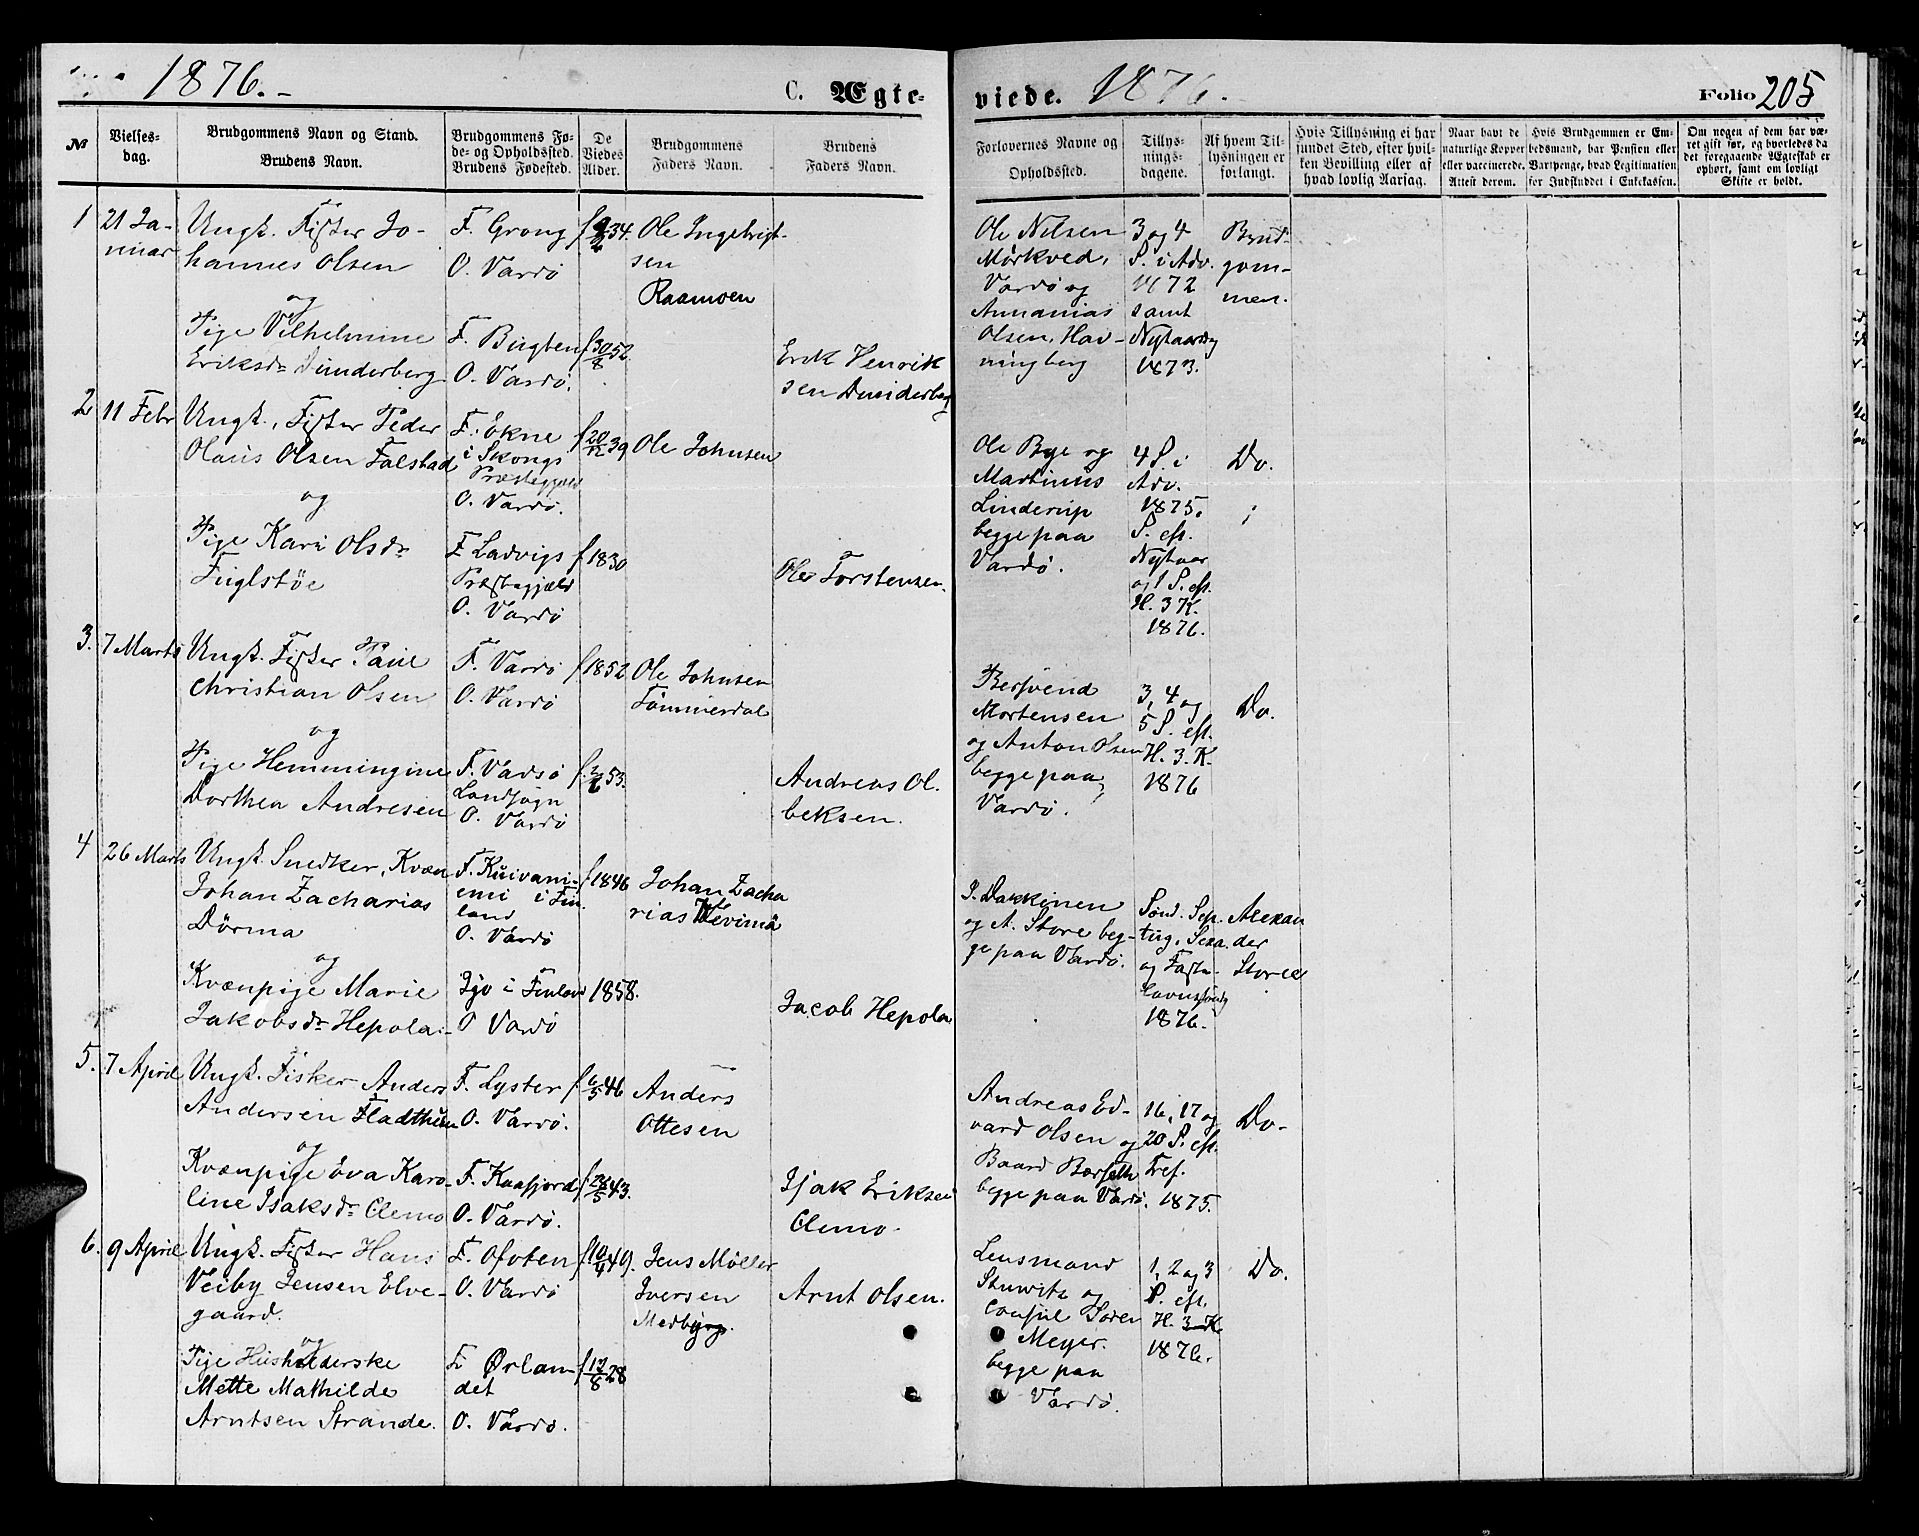 1876.
C. Ægte-
viede.
1876.
Folio 205
№
Vielses-
dag.
Brudgommens Navn og Stand.
Brudens Navn.
Brudgommens Fø-
de- og Opholdssted.
Brudens Fødested.
De
Viedes
Alder.
Brudgommens
Faders Navn.
Brudens
Faders Navn.
Forlovernes Navne og
Opholdssted.
Tillys-
nings-
dagene.
Af hvem Til-
lysningen er
forlangt.
Hvis Tillysning ei har
fundet Sted, efter hvil-
ken Bevilling eller af
hvad lovlig Aarsag.
Naar havt de
naturlige Kopper
eller vaccinerede.
Attest derom.
Hvis Brudgommen er Em-
bedsmand, har Pension eller
Vartpenge, hvad Legitimation
for Indskuddet i Enkekassen.
Om nogen af dem har væ-
ret gift før, og hvorledes da
det foregaaende Ægteskab er
ophørt, samt om lovligt
Skifte er holdt.
1
21 Ja-
nuar
Ungk. Fisker Jo-
hannes Olsen
og
Pige Vilhelmine
Eriksdr Dunderberg
F. Grong
O. Vardö
F. Bugten
O. Vardö.
34.
f 30/8 52
Ole Ingebrigt-
sen
Raamoen
Erik Henrik
sen Dunderberg
Ole Nilsen
Mörkved,
Vardö og
Annanias
Olsen, Hav-
ningberg
3 og 4
S. i Adv.
1872
samt
Nytaarsdg
1873.
Brud-
gom-
men.
2
11 Febr
Ungk., Fisker Peder
Olaus Olsen Falstad
og
Pige Kari Olsdr
Fuglstöe
F. Ökne
i Skongs
Præstegjæld
O. Vardö.
F Ladvigs
Præstegjæld
O. Vardö
f 20/12 39
f 1830
Ole Johnsen
Ole Torstensen.
Ole Bye og
Martinus
Linderup
begge paa
Vardö.
4 S. i
Adv.
1875.
S. eft.
Nytaar
og 1 S. eft.
H. 3 K.
1876.
Do.
3.
7 Marts
Ungk. Fisker Paul
Christian Olsen
og
Pige Hemmingine
Dorthea Andresen
F. Vardö
O. Vardö
F. Vadsö
Landsogn
O. Vardö
f 1852
53.
Ole Johnsen
Tömmerdal
Andreas Ol.
beksen.
Bersvend
Mortensen
og Anton Olsen
begge paa
Vardö.
3, 4 og
5 S. eft.
H. 3. K.
1876
Do.
4
26 Marts
Ungk. Snedker, Kvæn
Johan Zacharias
Dörma
og
Kvænpige Marie
Jakobsdr Hepola.
F. Kuivani-
emi i Fin-
land
O. Vardö
Ijo i Finland
O Vardö
f 1846
1858.
Johan Zacha
rias
Jacob Hepola
J. Dakkinen
og A. Store beg-
ge paa Vardö.
Sönd. Sep.
tug. Sexa.
og Faste-
lavnssöndg
1876.
Alexan
der
Store
5.
7 April
Ungk. Fisker Anders
Andersen Fladthuun
og
Kvænpige Eva Karo-
line Isaksdr Clemo
F. Lyster
O. Vardö.
F. Kaafjord
O. Vardö.
f. 6/5 46
f. 28/5 43.
Anders
Ottesen
Isak Eriksen
Clemo.
Andreas Ed-
vard Olsen og
Baard Borseth
begge paa Vardö.
16, 17 og
20 S. eft.
Tref.
1875.
Do.
6.
9 April
Ungk. Fisker Hans
Veiby Jensen Elve-
gaard.
og
Pige Husholderske
Mette Mathilde
Arntsen Strande.
F. Ofoten
O. Vardö
F. Ørlan-
det
O. Vardö.
f 10/4 49.
28
Jens Möller
Iversen
Arnt Olsen.
Lensmand
Stuwitz og
Consul Sören
Meyer.
begge paa
Vardö.
1, 2 og 3
S. eft.
H. 3 K.
1876.
Do.